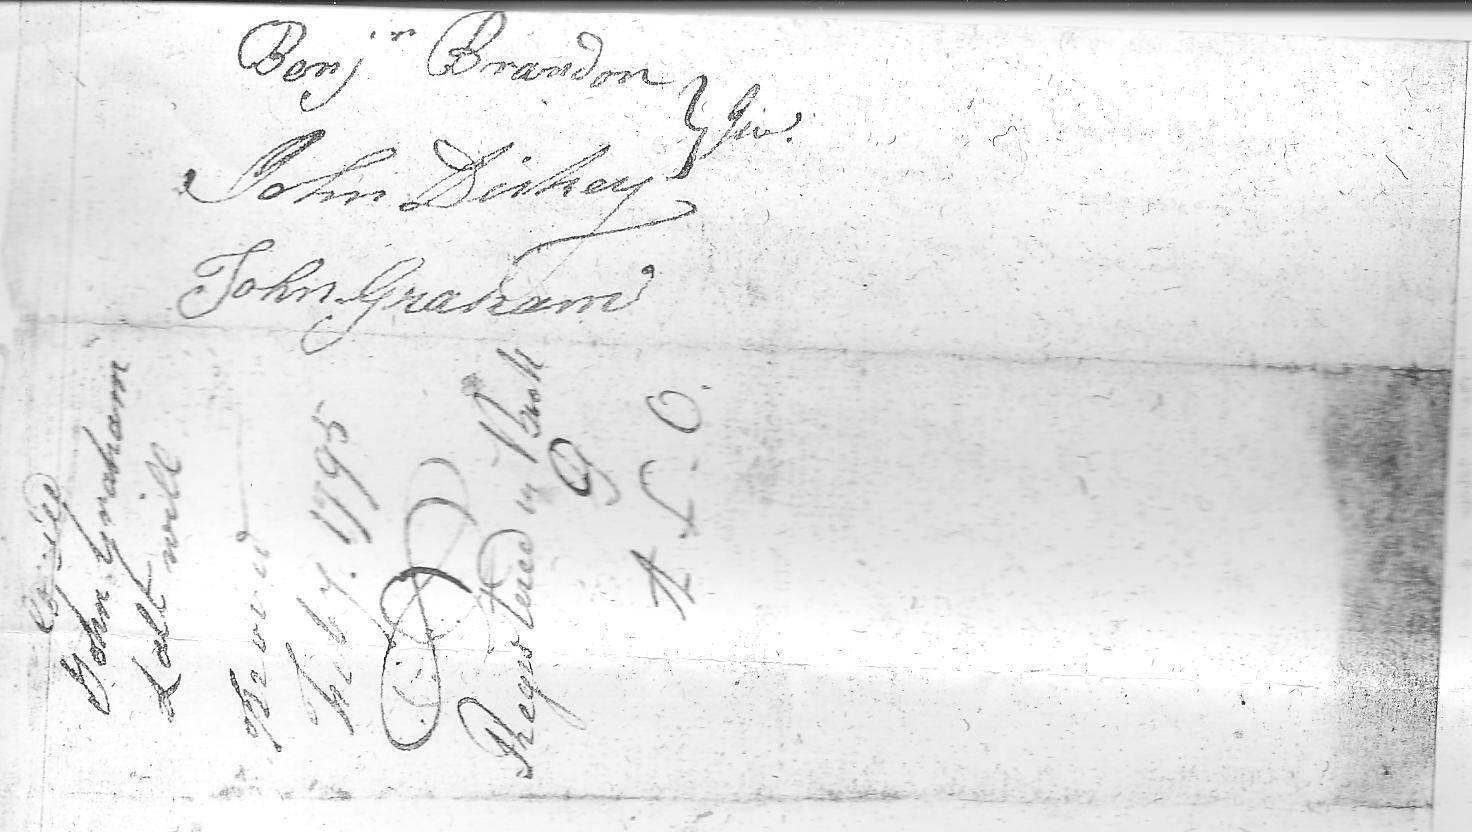 Benjn Brandon
Jur.
John Dickey
John Graham
Copied
John Graham
Last will
Proved
Feby. 1795
Registered in Book
G